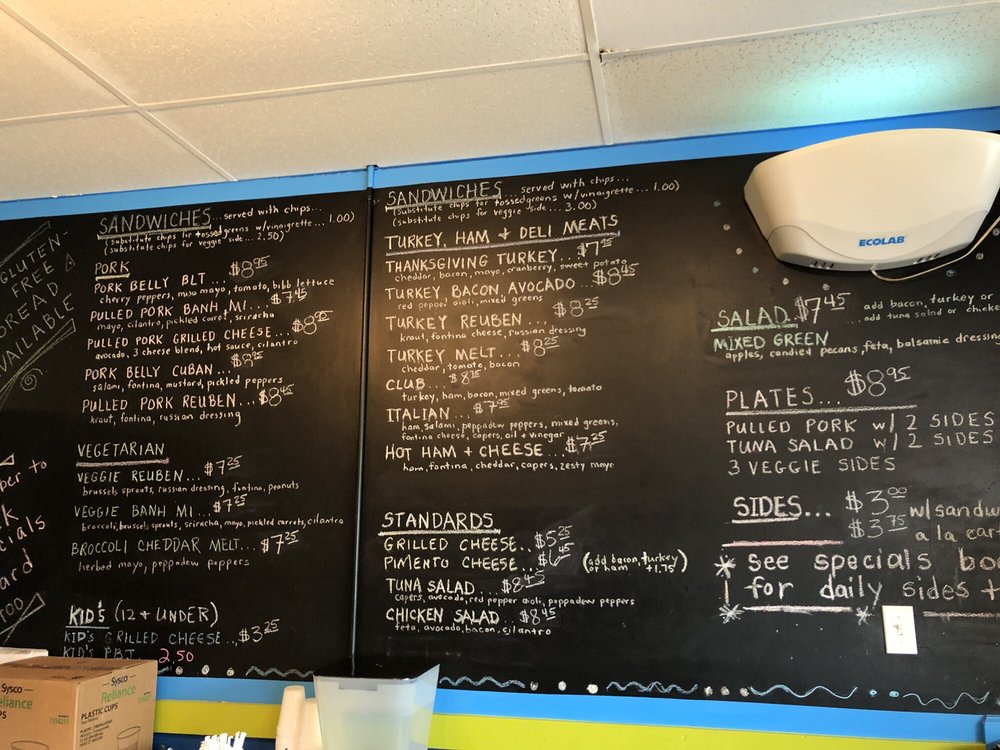 GLUTEN-
FREE
BREAD
AVAILABLE
SANDWICHES...served with chips...
(substitute chips for tossed greens w/vinaigrette...1.00)
(substitute chips for veggie side...2.50)
PORK
PORK BELLY BLT...$8.95
cherry peppers, miso mayo, tomato, bibb lettuce
PULLED PORK BANH MI...$7.45
mayo, cilantro, pickled carrot, sriracha
PULLED PORK GRILLED CHEESE...$8.95
avocado, 3 cheese blend, hot sauce, cilantro
PORK BELLY CUBAN...$8.95
salami, fontina, mustard, pickled peppers
PULLED PORK REUBEN...$8.45
kraut, fontina, russian dressing
VEGETARIAN
VEGGIE REUBEN...$7.25
brussels sprouts, russian dressing, fontina, peanuts
VEGGIE BANH MI...$7.25
broccoli, brussels sprouts, sriracha, mayo, pickled carrots, cilantro
BROCCOLI CHEDDAR MELT...$7.25
herbed mayo, peppadew peppers
KID'S (12 + UNDER)
KID'S GRILLED CHEESE...$3.25
KID'S PBJ 2.50
SANDWICHES...served with chips...
(substitute chips for tossed greens w/vinaigrette...1.00)
(substitute chips for veggie side...3.00)
TURKEY, HAM + DELI MEATS
THANKSGIVING TURKEY...$7.95
cheddar, bacon, mayo, cranberry, sweet potato
TURKEY BACON AVOCADO...$8.45
red pepper aioli, mixed greens
TURKEY REUBEN...$8.25
kraut, fontina cheese, russian dressing
TURKEY MELT...$8.25
cheddar, tomato, bacon
CLUB...$8.25
turkey, ham, bacon, mixed greens, tomato
ITALIAN...$7.95
ham, salami, peppadew peppers, mixed greens,
fontina cheese, capers, oil + vinegar
HOT HAM + CHEESE...$7.25
ham, fontina, cheddar, capers, zesty mayo
STANDARDS
GRILLED CHEESE...$5.25
PIMENTO CHEESE...$6.45 (add bacon, turkey
or ham +1.75)
TUNA SALAD...$8.45
capers, avocado, red pepper aioli, peppadew peppers
CHICKEN SALAD...$8.45
feta, avocado, bacon, cilantro
ECOLAB
SALAD...$7.45 add bacon, turkey or
add tuna salad or
MIXED GREEN
apples, candied pecans, feta, balsamic dressing
PLATES...$8.95
PULLED PORK w/ 2 SIDES
TUNA SALAD w/ 2 SIDES
3 VEGGIE SIDES
SIDES... $3.00 w/
$3.75 a la
* see specials
for daily sides +
TOO
Sysco
Reliance
PLASTIC CUPS
Sysco
Reliance